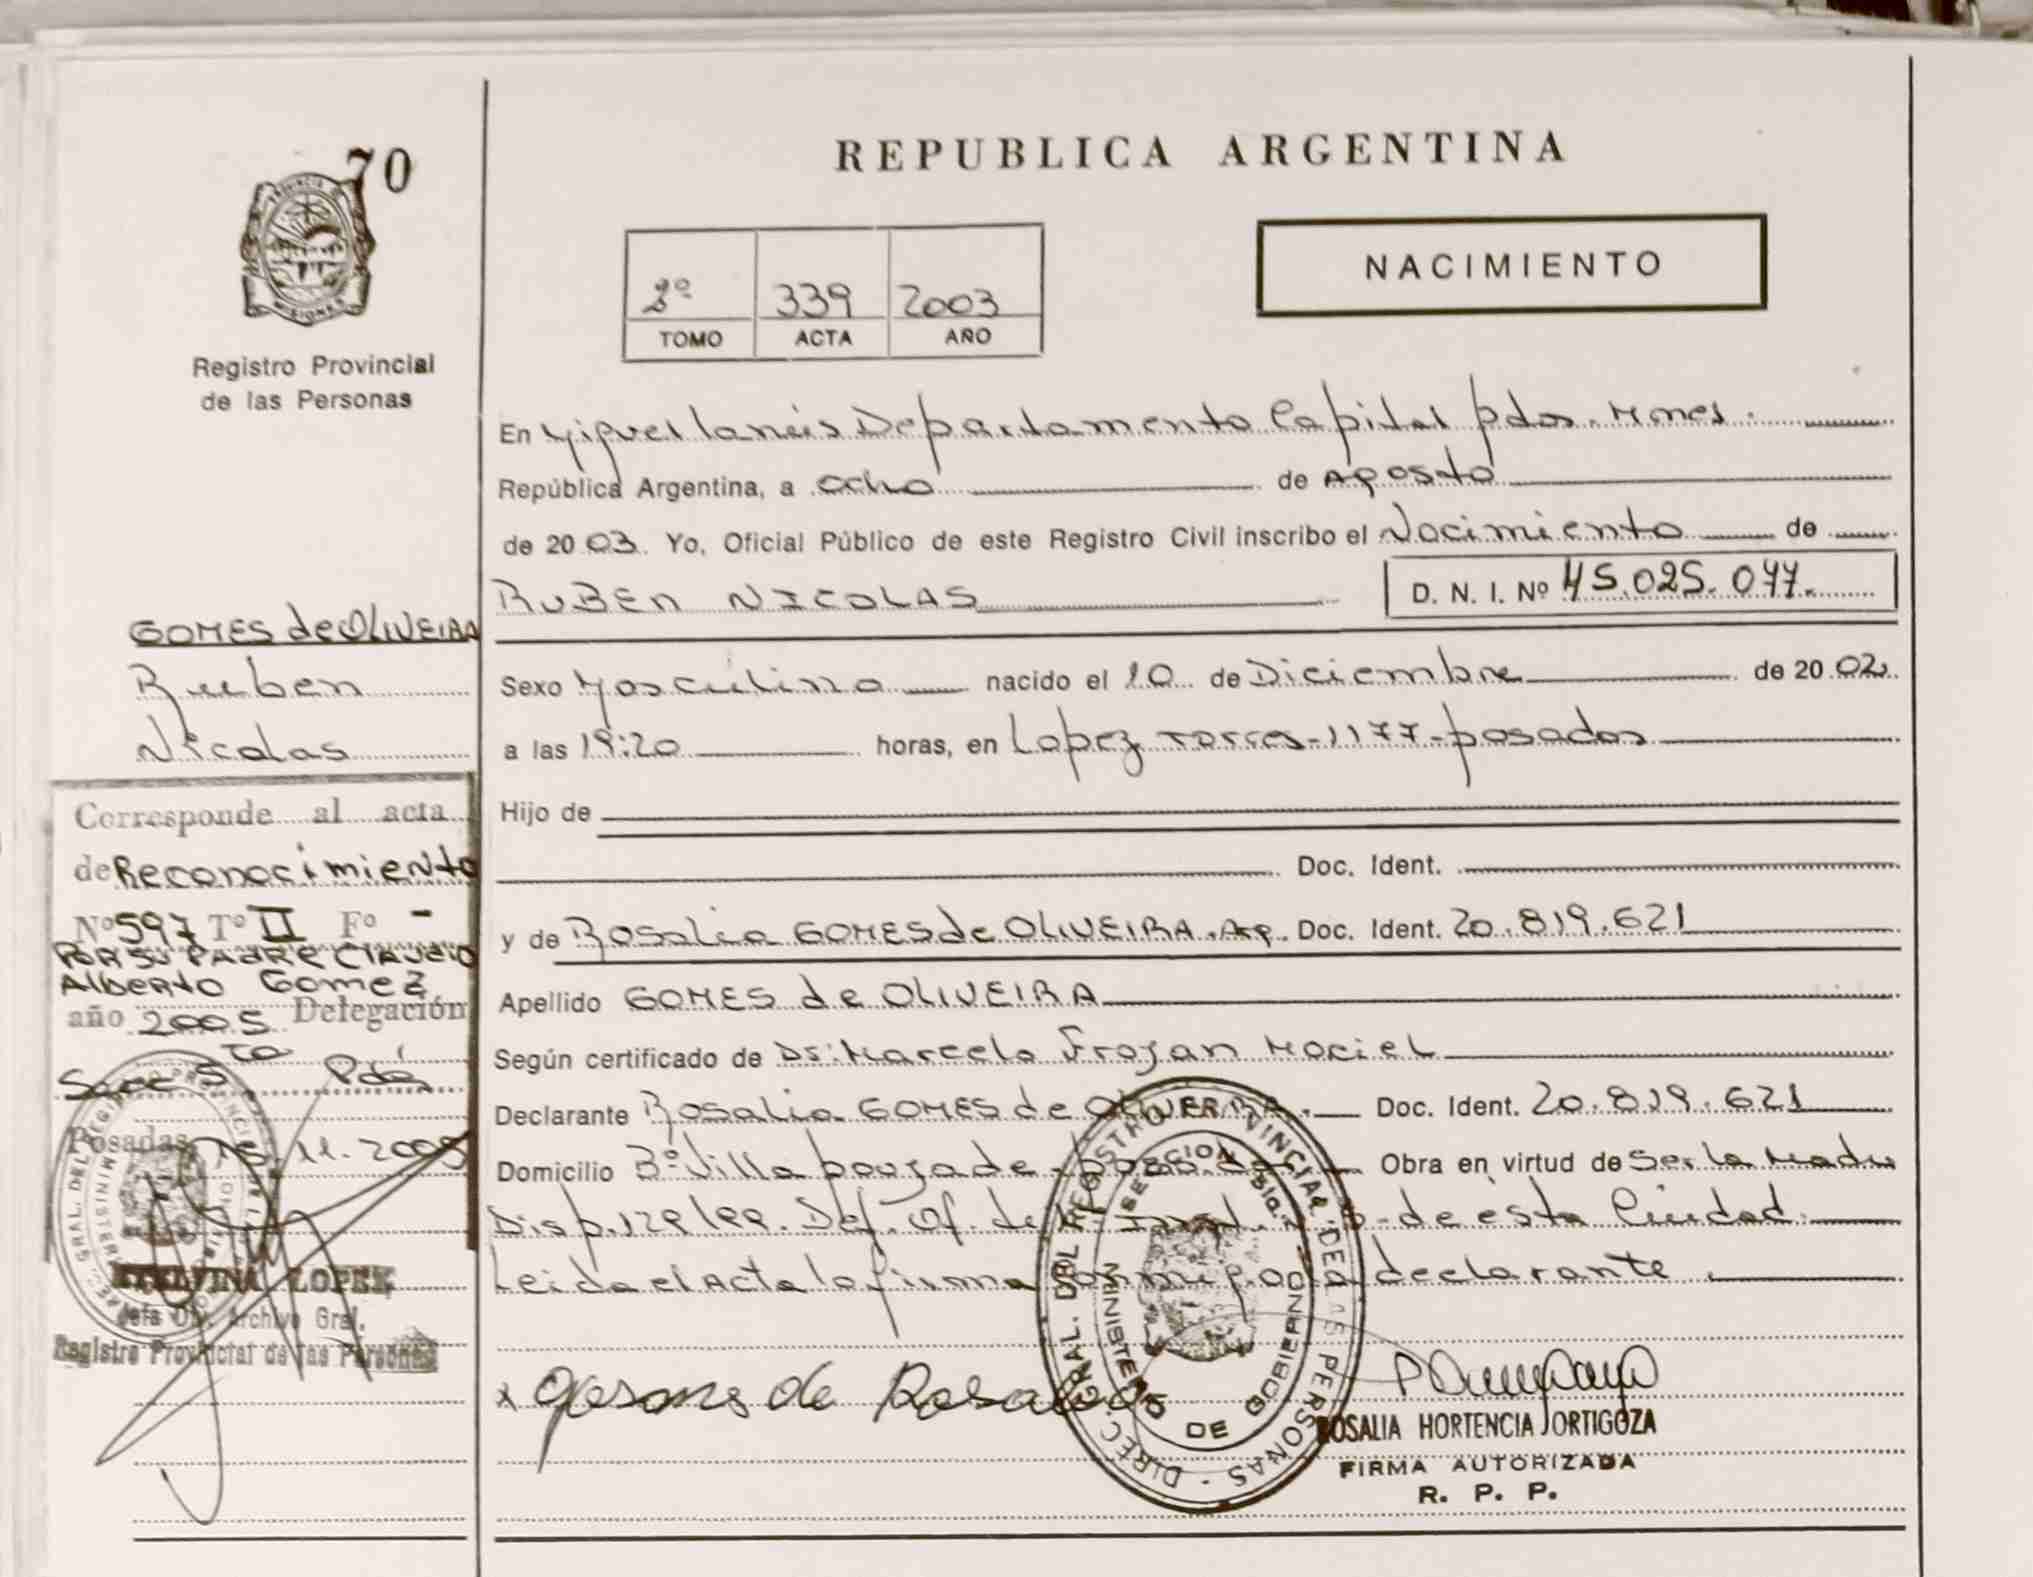 70
PROVINCIA DE MISIONES
Registro Provincial
de las Personas
REPUBLICA ARGENTINA
NACIMIENTO
2º 339 2003
TOMO ACTA AÑO
En Miguel Lanús Departamento Capital Pdas. Mnes.
República Argentina, a ocho de Agosto
de 2003. Yo, Oficial Público de este Registro Civil inscribo el Nacimiento de
RUBEN NICOLAS D. N. I. Nº 45.025.077.
Sexo Masculino nacido el 10 de Diciembre de 2002
a las 19:20 horas, en Lopez Torres-1177-posadas
Hijo de
Doc. Ident.
y de Rosalia GOMES de OLIVEIRA. Arg. Doc. Ident. 20.819.621
Apellido GOMES de OLIVEIRA
Según certificado de Dr: Marcelo Trojan Maciel
Declarante Rosalia GOMES de OLIVEIRA. Doc. Ident. 20.819.621
Domicilio Bº Villa Obra en virtud de Ser la Madre
Disp. 129/99. Def. Of. de de esta Ciudad
Leida el Acta la firma declarante.
ROSALIA HORTENCIA ORTIGOZA
FIRMA AUTORIZADA
R. P. P.
DIREC. GRAL. DEL REGISTRO PROVINCIAL DE LAS PERSONAS
MINISTERIO DE GOBIERNO
GOMES de OLIVEIRA
Ruben
Nicolas
Corresponde al acta
de Reconocimiento
Nº 597 Tº II Fº -
POR SU PADRE CLAUDIO
Alberto Gomez
año 2005 Delegación
Secc 5ta Pdas
Posadas 11.2005
LOPEZ
Jefa Archivo Gral.
Registro Provincial de las Personas